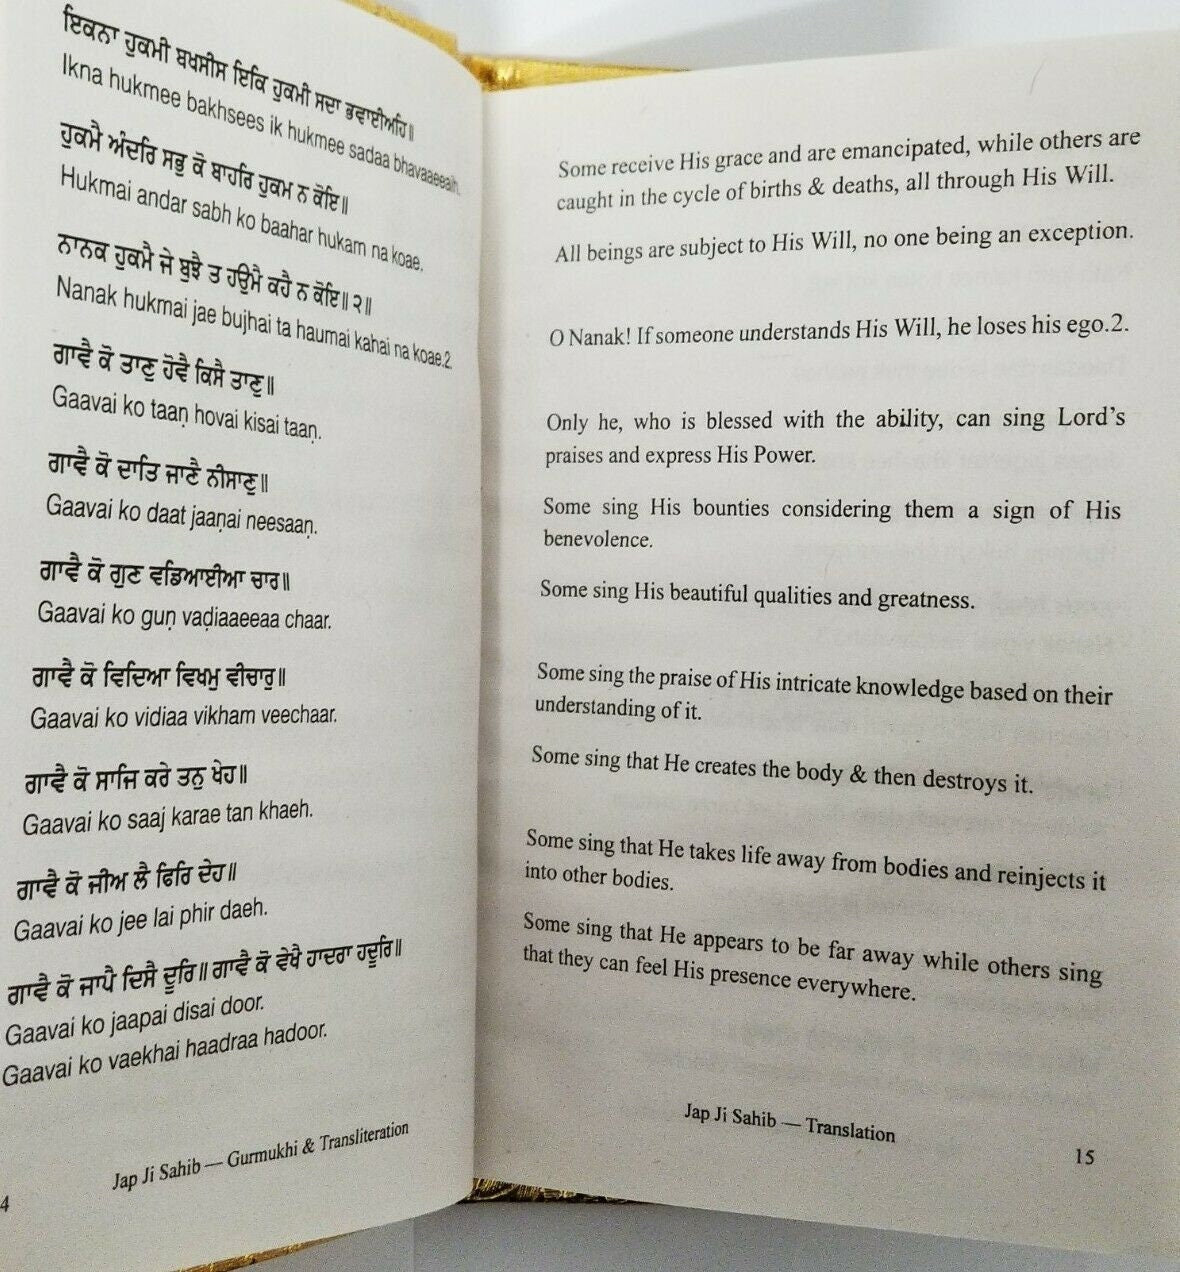 ਇਕਨਾ ਹੁਕਮੀ ਬਖਸੀਸ ਇਕਿ ਹੁਕਮੀ ਸਦਾ ਭਵਾਈਅਹਿ॥
Ikna hukmee bakhsees ik hukmee sadaa bhavaaeeaih.
ਹੁਕਮੈ ਅੰਦਰਿ ਸਭੁ ਕੋ ਬਾਹਰਿ ਹੁਕਮ ਨ ਕੋਇ॥
Hukmai andar sabh ko baahar hukam na koae.
ਨਾਨਕ ਹੁਕਮੈ ਜੇ ਬੁਝੈ ਤ ਹਉਮੈ ਕਹੈ ਨ ਕੋਇ॥੨॥
Nanak hukmai jae bujhai ta haumai kahai na koae.2.
ਗਾਵੈ ਕੋ ਤਾਣੁ ਹੋਵੈ ਕਿਸੈ ਤਾਣੁ॥
Gaavai ko taaṇ hovai kisai taaṇ.
ਗਾਵੈ ਕੋ ਦਾਤਿ ਜਾਣੈ ਨੀਸਾਣੁ॥
Gaavai ko daat jaaṇai neesaaṇ.
ਗਾਵੈ ਕੋ ਗੁਣ ਵਡਿਆਈਆ ਚਾਰ॥
Gaavai ko guṇ vaḍiaaeeaa chaar.
ਗਾਵੈ ਕੋ ਵਿਦਿਆ ਵਿਖਮੁ ਵੀਚਾਰੁ॥
Gaavai ko vidiaa vikham veechaar.
ਗਾਵੈ ਕੋ ਸਾਜਿ ਕਰੇ ਤਨੁ ਖੇਹ॥
Gaavai ko saaj karae tan khaeh.
ਗਾਵੈ ਕੋ ਜੀਅ ਲੈ ਫਿਰਿ ਦੇਹ॥
Gaavai ko jee lai phir daeh.
ਗਾਵੈ ਕੋ ਜਾਪੈ ਦਿਸੈ ਦੂਰਿ॥ ਗਾਵੈ ਕੋ ਵੇਖੈ ਹਾਦਰਾ ਹਦੂਰਿ॥
Gaavai ko jaapai disai door.
Gaavai ko vaekhai haadraa hadoor.
Jap Ji Sahib — Gurmukhi & Transliteration
4
Some receive His grace and are emancipated, while others are
caught in the cycle of births & deaths, all through His Will.
All beings are subject to His Will, no one being an exception.
O Nanak! If someone understands His Will, he loses his ego.2.
Only he, who is blessed with the ability, can sing Lord's
praises and express His Power.
Some sing His bounties considering them a sign of His
benevolence.
Some sing His beautiful qualities and greatness.
Some sing the praise of His intricate knowledge based on their
understanding of it.
Some sing that He creates the body & then destroys it.
Some sing that He takes life away from bodies and reinjects it
into other bodies.
Some sing that He appears to be far away while others sing
that they can feel His presence everywhere.
Jap Ji Sahib — Translation
15